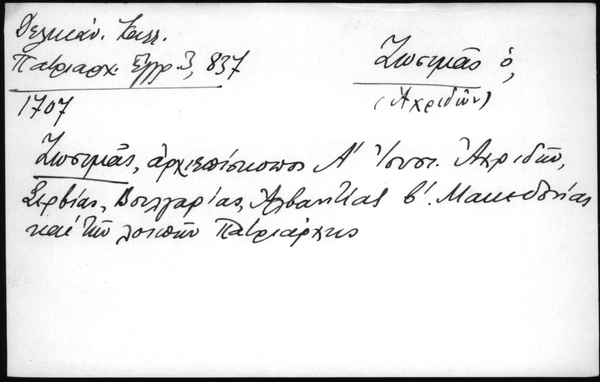 Δελικάν. Καλλ.
Πατριαρχ. Ἔγγρ. 3, 837
1707
Ζωσιμᾶς ὁ,
(Ἀχριδῶν)
Ζωσιμᾶς, ἀρχιεπίσκοπος Α' Ἰουστ. Ἀχριδῶν,
Σερβίας, Βουλγαρίας, Ἀλβανίας β'. Μακεδονίας
καί τῶν λοιπῶν Πατριάρχης